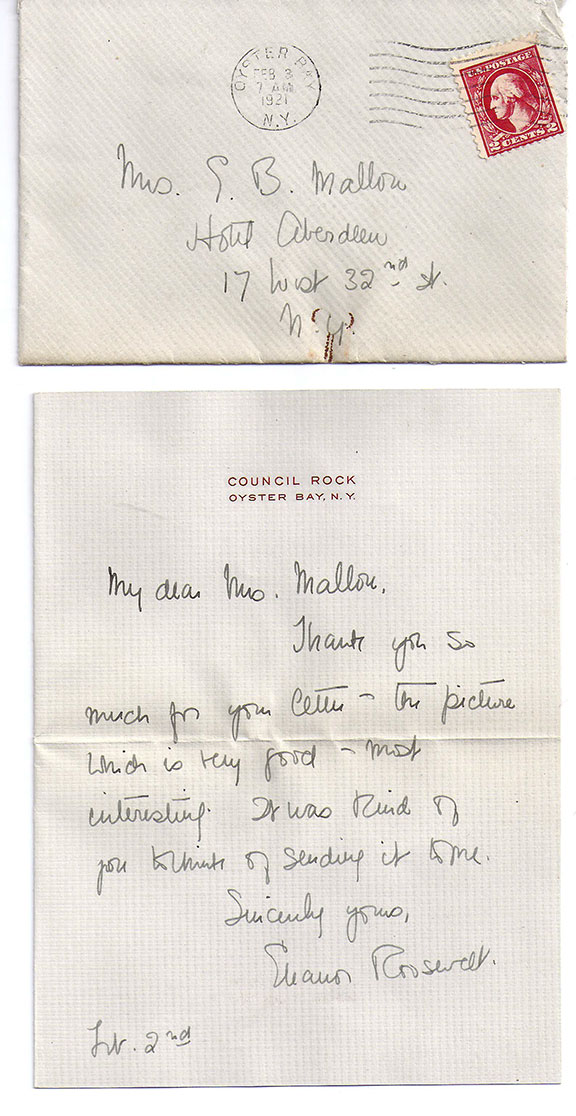 OYSTER BAY
FEB 3
7 AM
1921
N.Y.
U.S. POSTAGE
2 CENTS 2
Mrs. G. B. Mallon
Hotel Aberdeen
17 West 32nd St.
N.Y.
COUNCIL ROCK
OYSTER BAY, N.Y.
My dear Mrs. Mallon,
Thank you so
much for your letter – the picture
which is very good – most
interesting. It was kind of
you to think of sending it to me.
Sincerely yours,
Eleanor Roosevelt.
Feb. 2nd